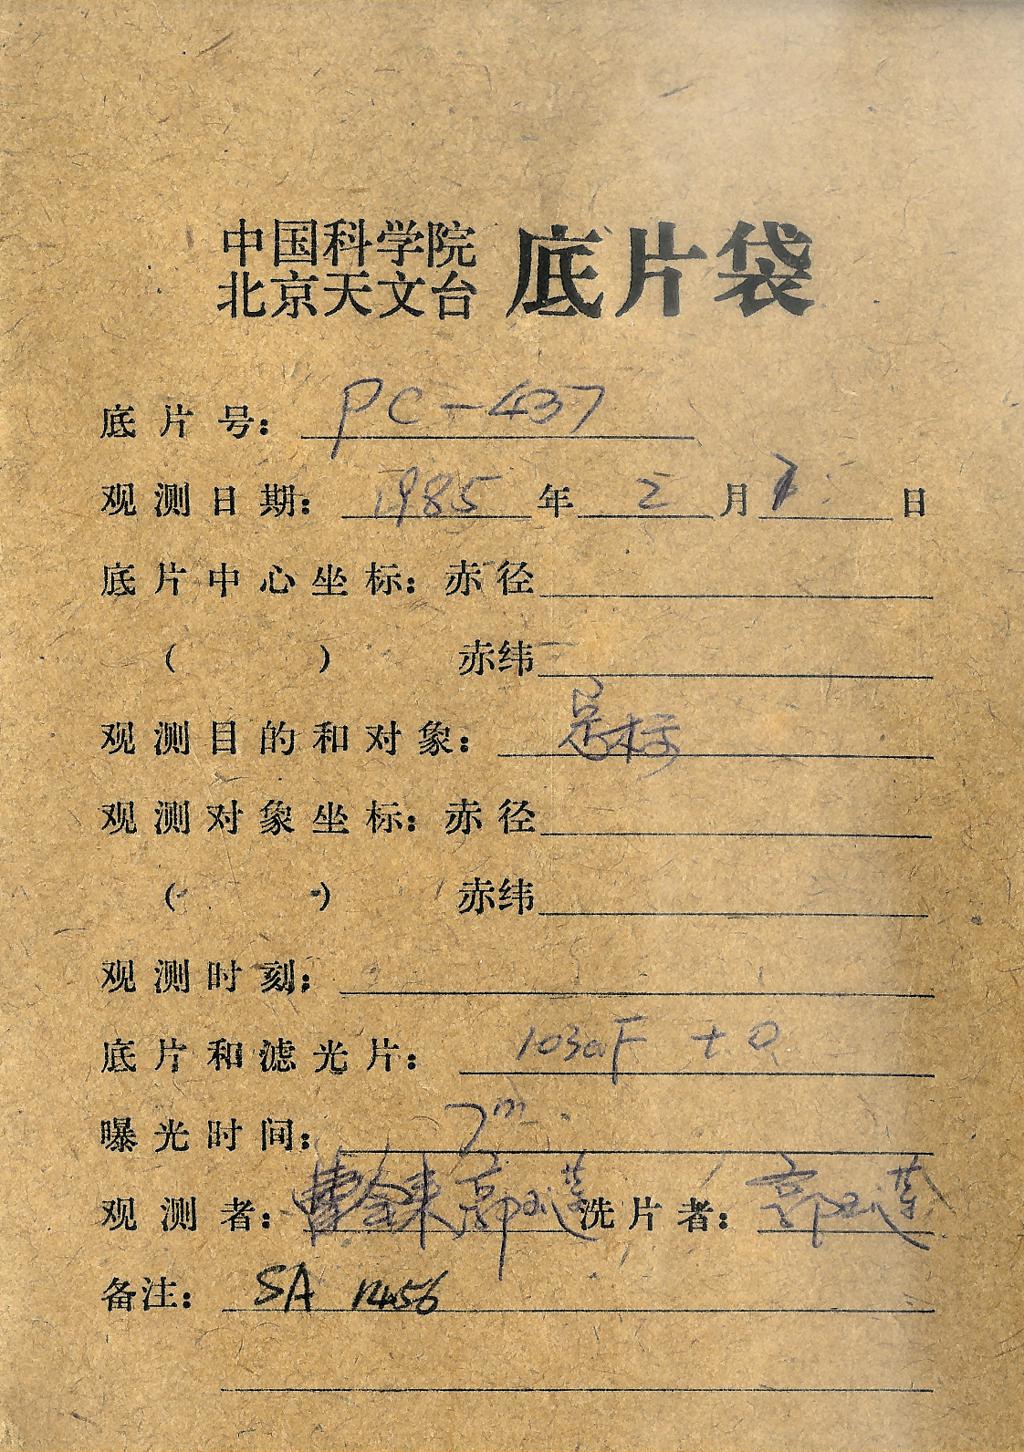 中国科学院
北京天文台 底片袋
底片号: PC-437
观测日期: 1985年 2月 7日
底片中心坐标: 赤径
( ) 赤纬
观测目的和对象: 星标
观测对象坐标: 赤径
( ) 赤纬
观测时刻:
底片和滤光片: 103aF +
曝光时间: 7m
观测者: 郭 洗片者: 郭
备注: SA 1456